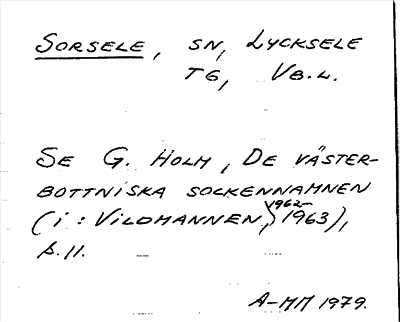 SORSELE, SN, LYCKSELE
TG, VB.L.
SE G. HOLM, DE VÄSTER-
BOTTNISKA SOCKENNAMNEN
(i: VILDMANNEN, 1962-1963),
s.11.
A-MM 1979.